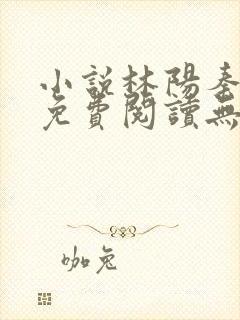 小說林陽秦
免費閱讀無
咖兔